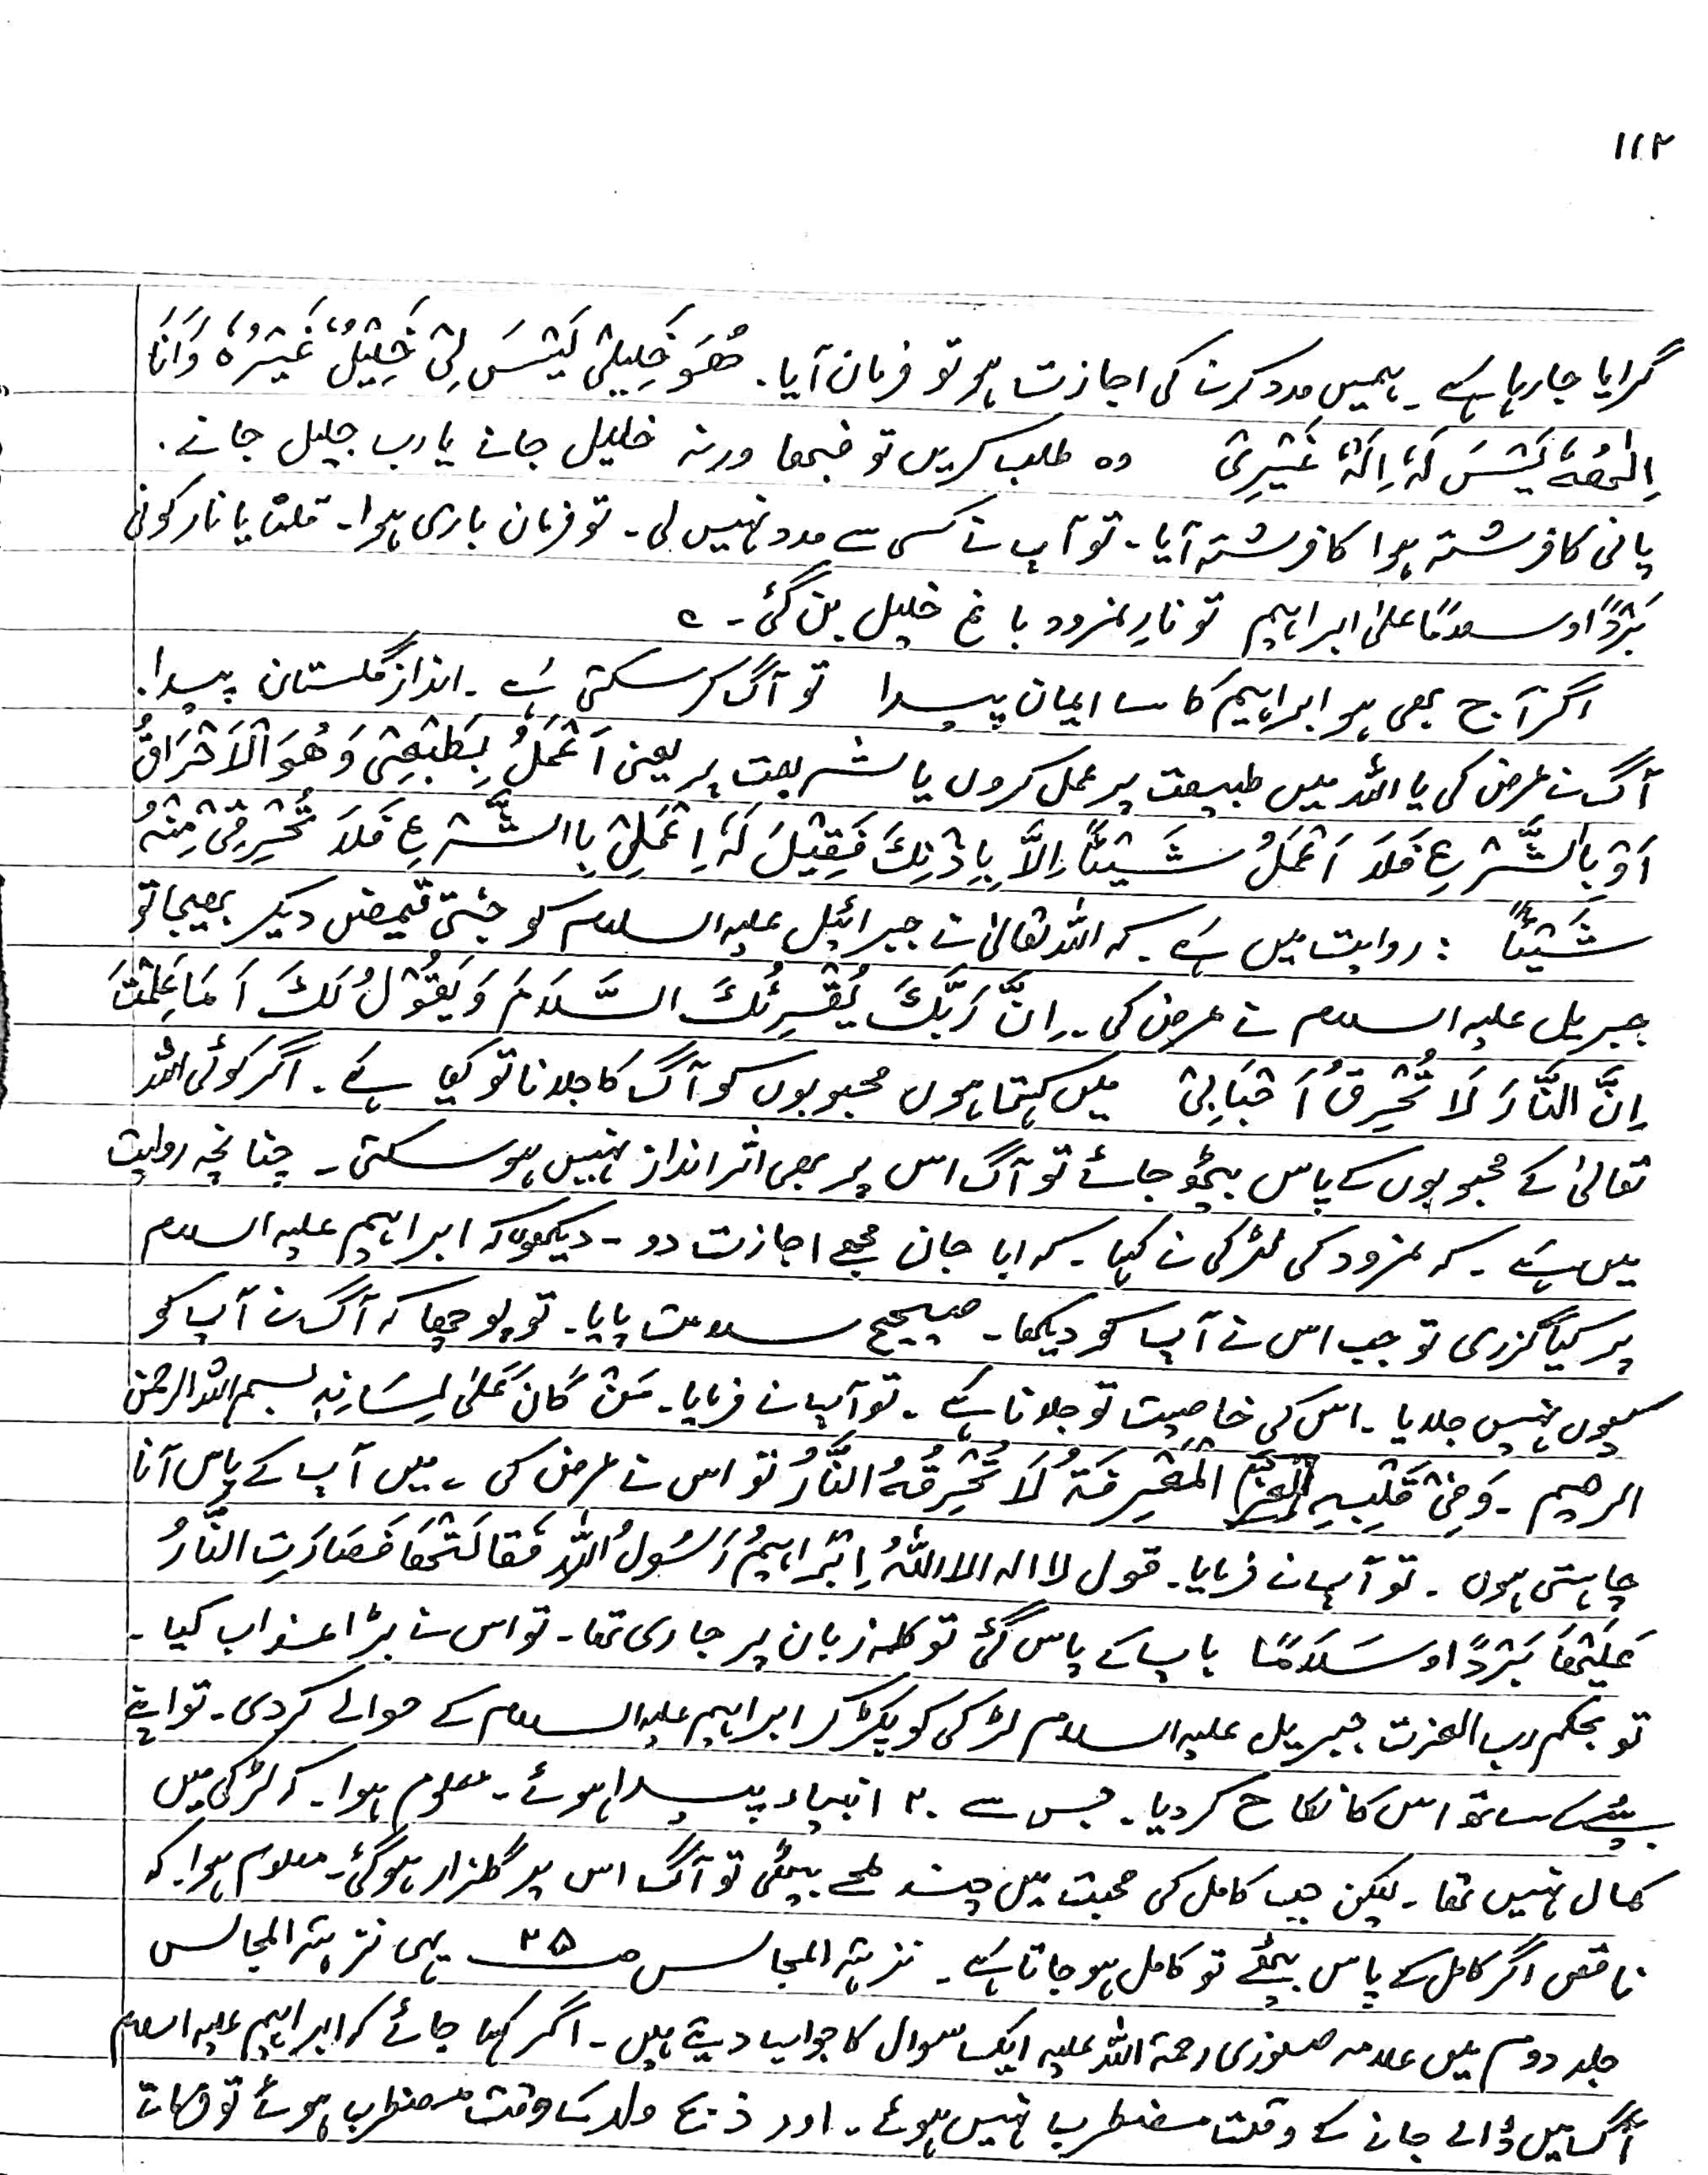 ۱۱۲
گرایا جا رہا ہے ۔ ہمیں مدد کرنے کی اجازت ہو تو فرمان آیا ۔ ھُوَ خَلِیْلِیْ لَیْسَ لِیْ خَلِیْلٌ غَیْرُہٗ وَاَنَا
اِلٰھُہٗ لَیْسَ لَہٗ اِلٰہٌ غَیْرِیْ وہ طلب کریں تو فبھا ورنہ خلیل جانے یا رب جلیل جانے ۔
پانی کا فرشتہ ہوا کا فرشتہ آیا ۔ تو آپ نے کسی سے مدد نہیں لی ۔ تو فرمان باری ہوا ۔ قلنا یا نار کونی
بَرْدًا وسلامًا علیٰ ابراہیم تو نارِ نمرود باغ خلیل بن گئی ۔ ؎
اگر آج بھی ہو ابراہیمؑ کا سا ایمان پیدا تو آگ کر سکتی ہے ۔ انداز گلستان پیدا ۔
آگ نے عرض کی یا اللہ میں طبیعت پر عمل کروں یا شریعت پر یعنی اَعْمَلُ بِطَبْعِیْ وَھُوَ الْاَحْرَاقُ
اَوْ بِالشَّرْعِ فَلَا اَعْمَلُ شَیْئًا اِلَّا بِاِذْنِکَ فَقِیْلَ لَہٗ اِعْمَلِیْ بِاالشَّرْعِ فَلَا تُحْرِقِیْ مِنْہُ
شَیْئًا : روایت میں ہے کہ اللہ تعالیٰ نے جبرائیل علیہ السلام کو جنتی قمیض دیکر بھیجا تو
جبریل علیہ السلام نے عرض کی ۔ اِنَّ رَبَّکَ یُقْرِئُکَ السَّلَامَ وَیَقُوْلُ لَکَ اَمَا عَلِمْتَ
اِنَّ النَّارَ لَا تُحْرِقُ اَحْبَابِیْ میں کہتا ہوں محبوبوں کو آگ کا جلانا تو کیا ہے ۔ اگر کوئی اللہ
تعالیٰ کے محبوبوں کے پاس بیٹھ جائے تو آگ اس پر بھی اثر انداز نہیں ہو سکتی ۔ چنانچہ روایت
میں ہے ۔ کہ نمرود کی لڑکی نے کہا ۔ کہ ابا جان مجھے اجازت دو ۔ دیکھوں کہ ابراہیم علیہ السلام
پر کیا گزری تو جب اس نے آپ کو دیکھا ۔ صحیح سلامت پایا ۔ تو پوچھا کہ آگ نے آپ کو
کیوں نہیں جلایا ۔ اس کی خاصیت تو جلانا ہے ۔ تو آپ نے فرمایا ۔ مَنْ کَانَ عَلیٰ لِسَانِہٖ بسم اللہ الرحمٰن
الرحیم ۔ وَفِیْ قَلْبِہٖ الْمَعْرِفَۃُ لَا تُحْرِقُہُ النَّارُ تو اس نے عرض کی ۔ میں آپ کے پاس آنا
چاہتی ہوں ۔ تو آپ نے فرمایا ۔ قول لا الہ الا اللہُ اِبْرَاہِیْمُ رَسُوْلُ اللہِ فَقَالَتْھَا فَصَارَتِ النَّارُ
عَلَیْھَا بَرْدًا وسَلَامًا باپ کے پاس گئی تو کلمہ زبان پر جاری تھا ۔ تو اس نے بڑا عذاب کیا ۔
تو بحکم رب العزت جبریل علیہ السلام لڑکی کو پکڑ کر ابراہیم علیہ السلام کے حوالے کر دی ۔ تو اپنے
بیٹے کے ساتھ اس کا نکاح کر دیا ۔ جس سے ۲۰ انبیاء پیدا ہوئے ۔ معلوم ہوا ۔ کہ لڑکی میں
کمال نہیں تھا ۔ لیکن جب کامل کی محبت میں چند لمحے بیٹھی تو آگ اس پر گلزار ہو گئی ۔ معلوم ہوا ۔ کہ
ناقص اگر کامل کے پاس بیٹھے تو کامل ہو جاتا ہے ۔ نزہۃ المجالس صـ ۲۵ یہی نزہتہ المجالس
جلد دوم میں علامہ صفوری رحمۃ اللہ علیہ ایک سوال کا جواب دیتے ہیں ۔ اگر کہا جائے کہ ابراہیم علیہ السلام
آگ میں ڈالے جانے کے وقت مضطرب نہیں ہوئے ۔ اور ذبح ولد کے وقت مضطرب ہوئے تو